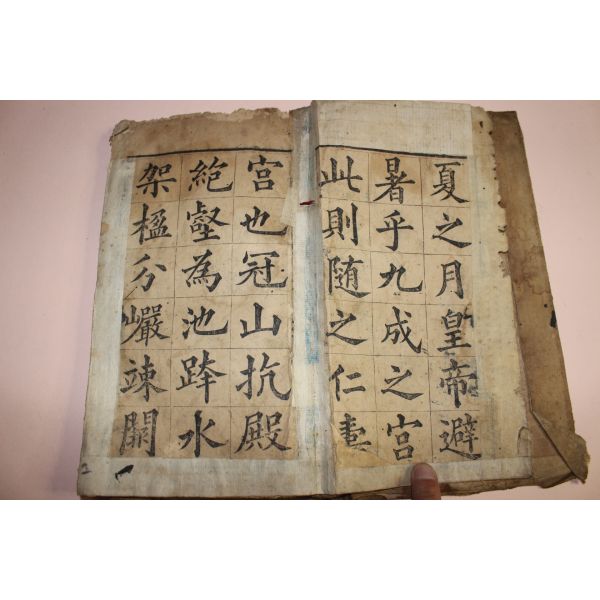 夏之月皇帝避
暑乎九成之宮
此則随之仁壽
宮也冠山抗殿
絶壑為池跨水
架楹分巖竦闕